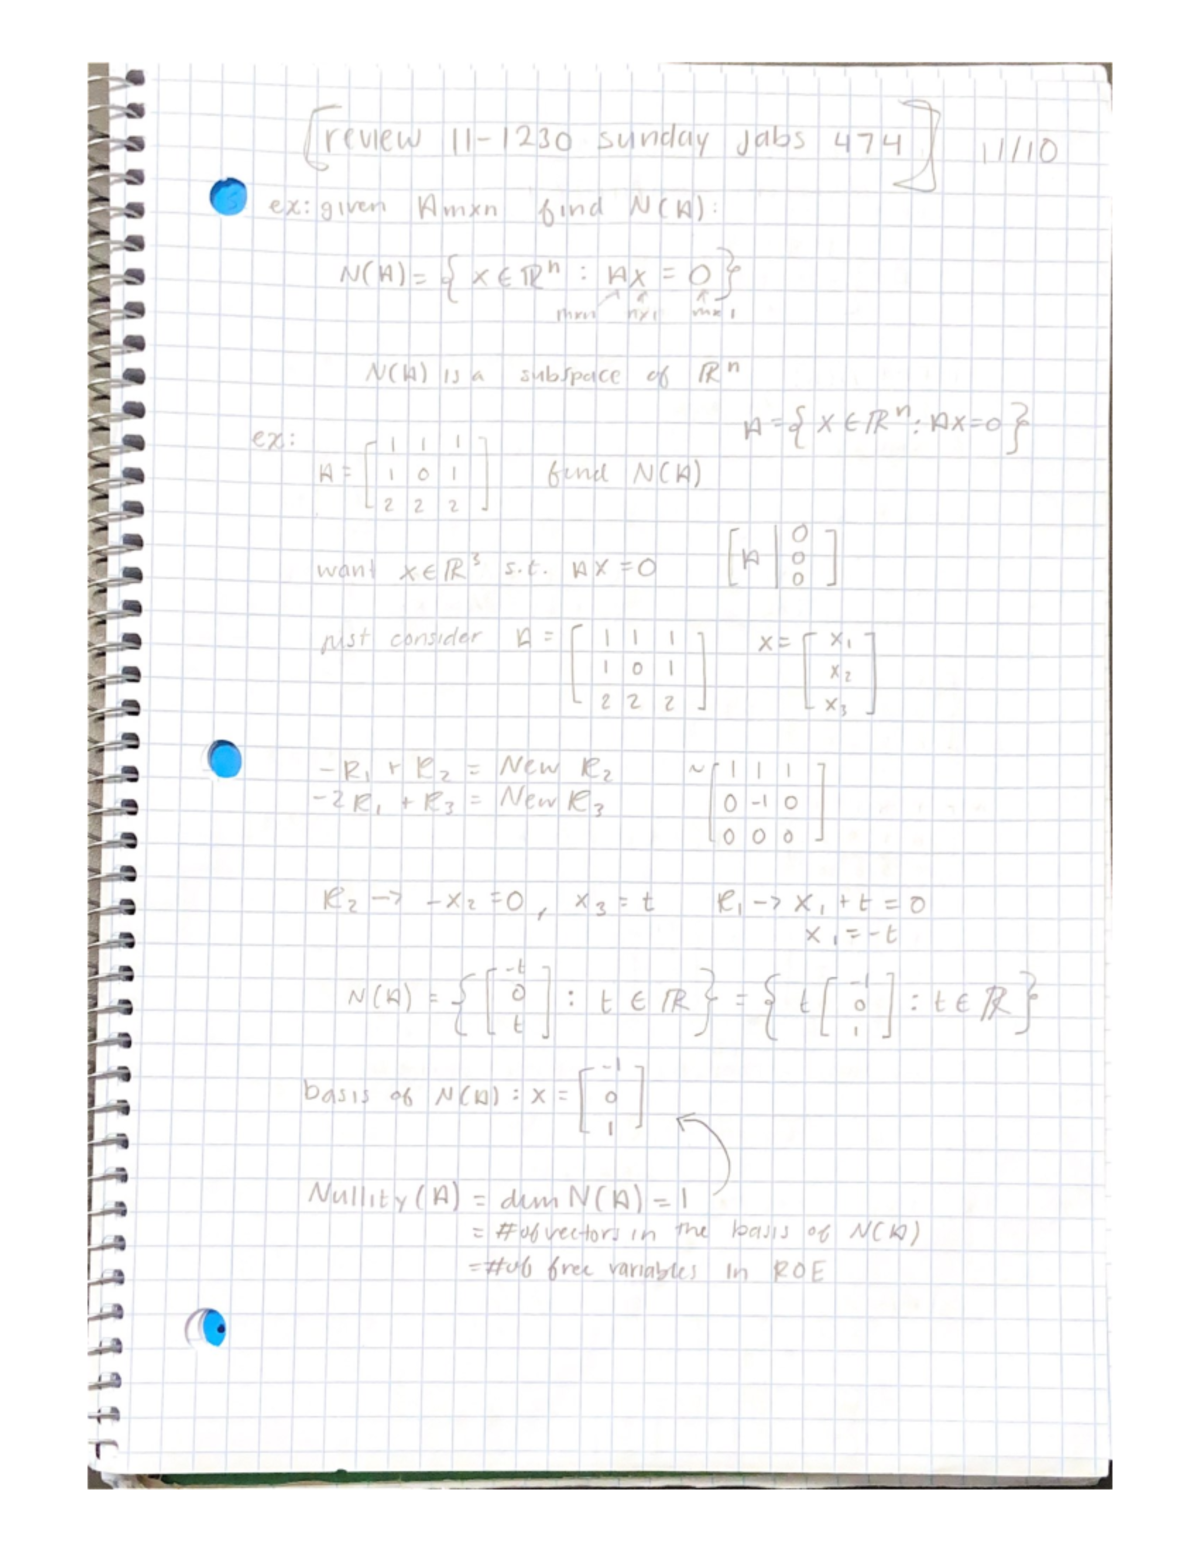 [review 11-1230 sunday Jabs 474] 11/10
ex: given Amxn find N(A):
N(A) = { x ∈ ℝⁿ : Ax = 0 }
mxn nx1 mx1
N(A) is a subspace of ℝⁿ
A = { x ∈ ℝⁿ : Ax = 0 }
ex:
A = [ 1 1 1
1 0 1
2 2 2 ] find N(A)
want x ∈ ℝ³ s.t. Ax = 0 [ A | 0
0
0 ]
just consider A = [ 1 1 1
1 0 1
2 2 2 ] x = [ x₁
x₂
x₃ ]
-R₁ + R₂ = New R₂ ~ [ 1 1 1
-2R₁ + R₃ = New R₃ 0 -1 0
0 0 0 ]
R₂ -> -x₂ = 0, x₃ = t R₁ -> x₁ + t = 0
x₁ = -t
N(A) = { [ -t
0
t ] : t ∈ ℝ } = { t [ -1
0
1 ] : t ∈ ℝ }
basis of N(A) : x = [ -1
0
1 ]
Nullity(A) = dim N(A) = 1
= # of vectors in the basis of N(A)
= # of free variables in ROE